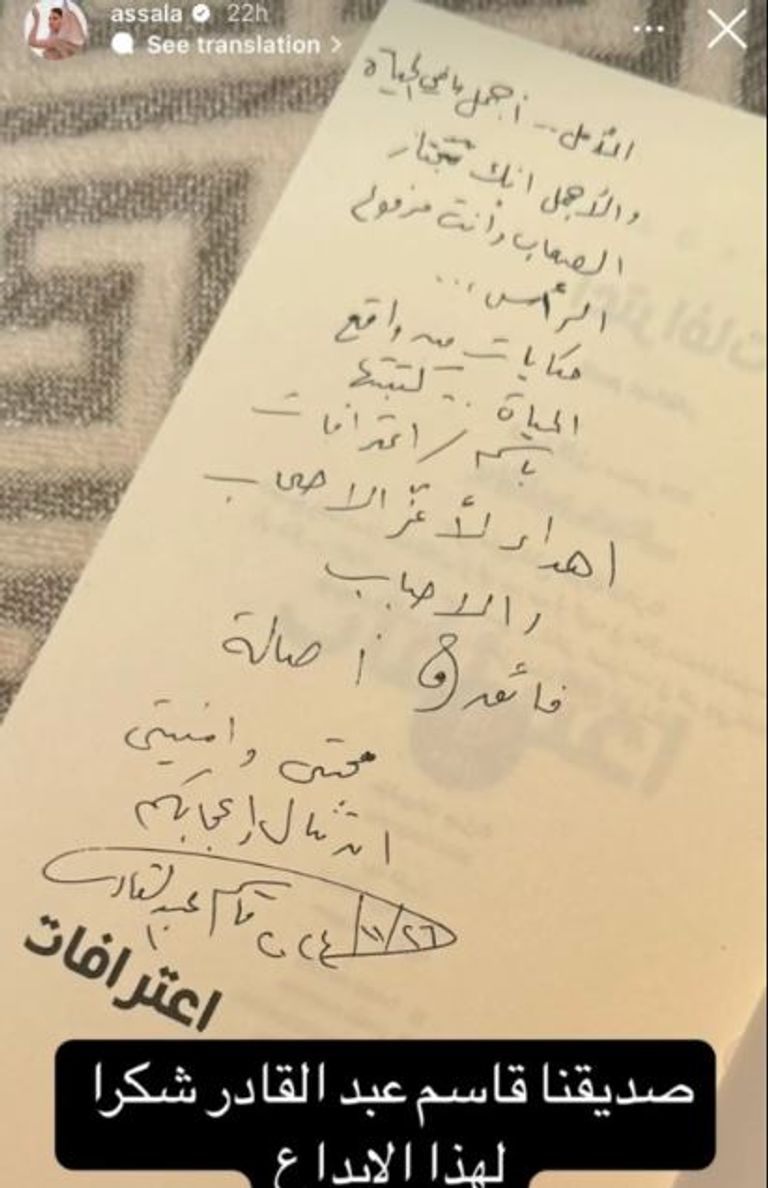 assala 22h
See translation
الأمل... أجمل ما في الحياة
والأجمل انك تجتاز
الصعاب وأنت مرفوع
الرأس...
حكايات من واقع
الحياة .. كتبتها
باسم / اعترافات
اهداء لأعز الاصحاب
والاحباب
فائق و أصالة
محبتي وامنيتي
ان تنال إعجابكم
قاسم عبدالقادر
٢٦/١١/
اعترافات
صديقنا قاسم عبد القادر شكرا
لهذا الابداع